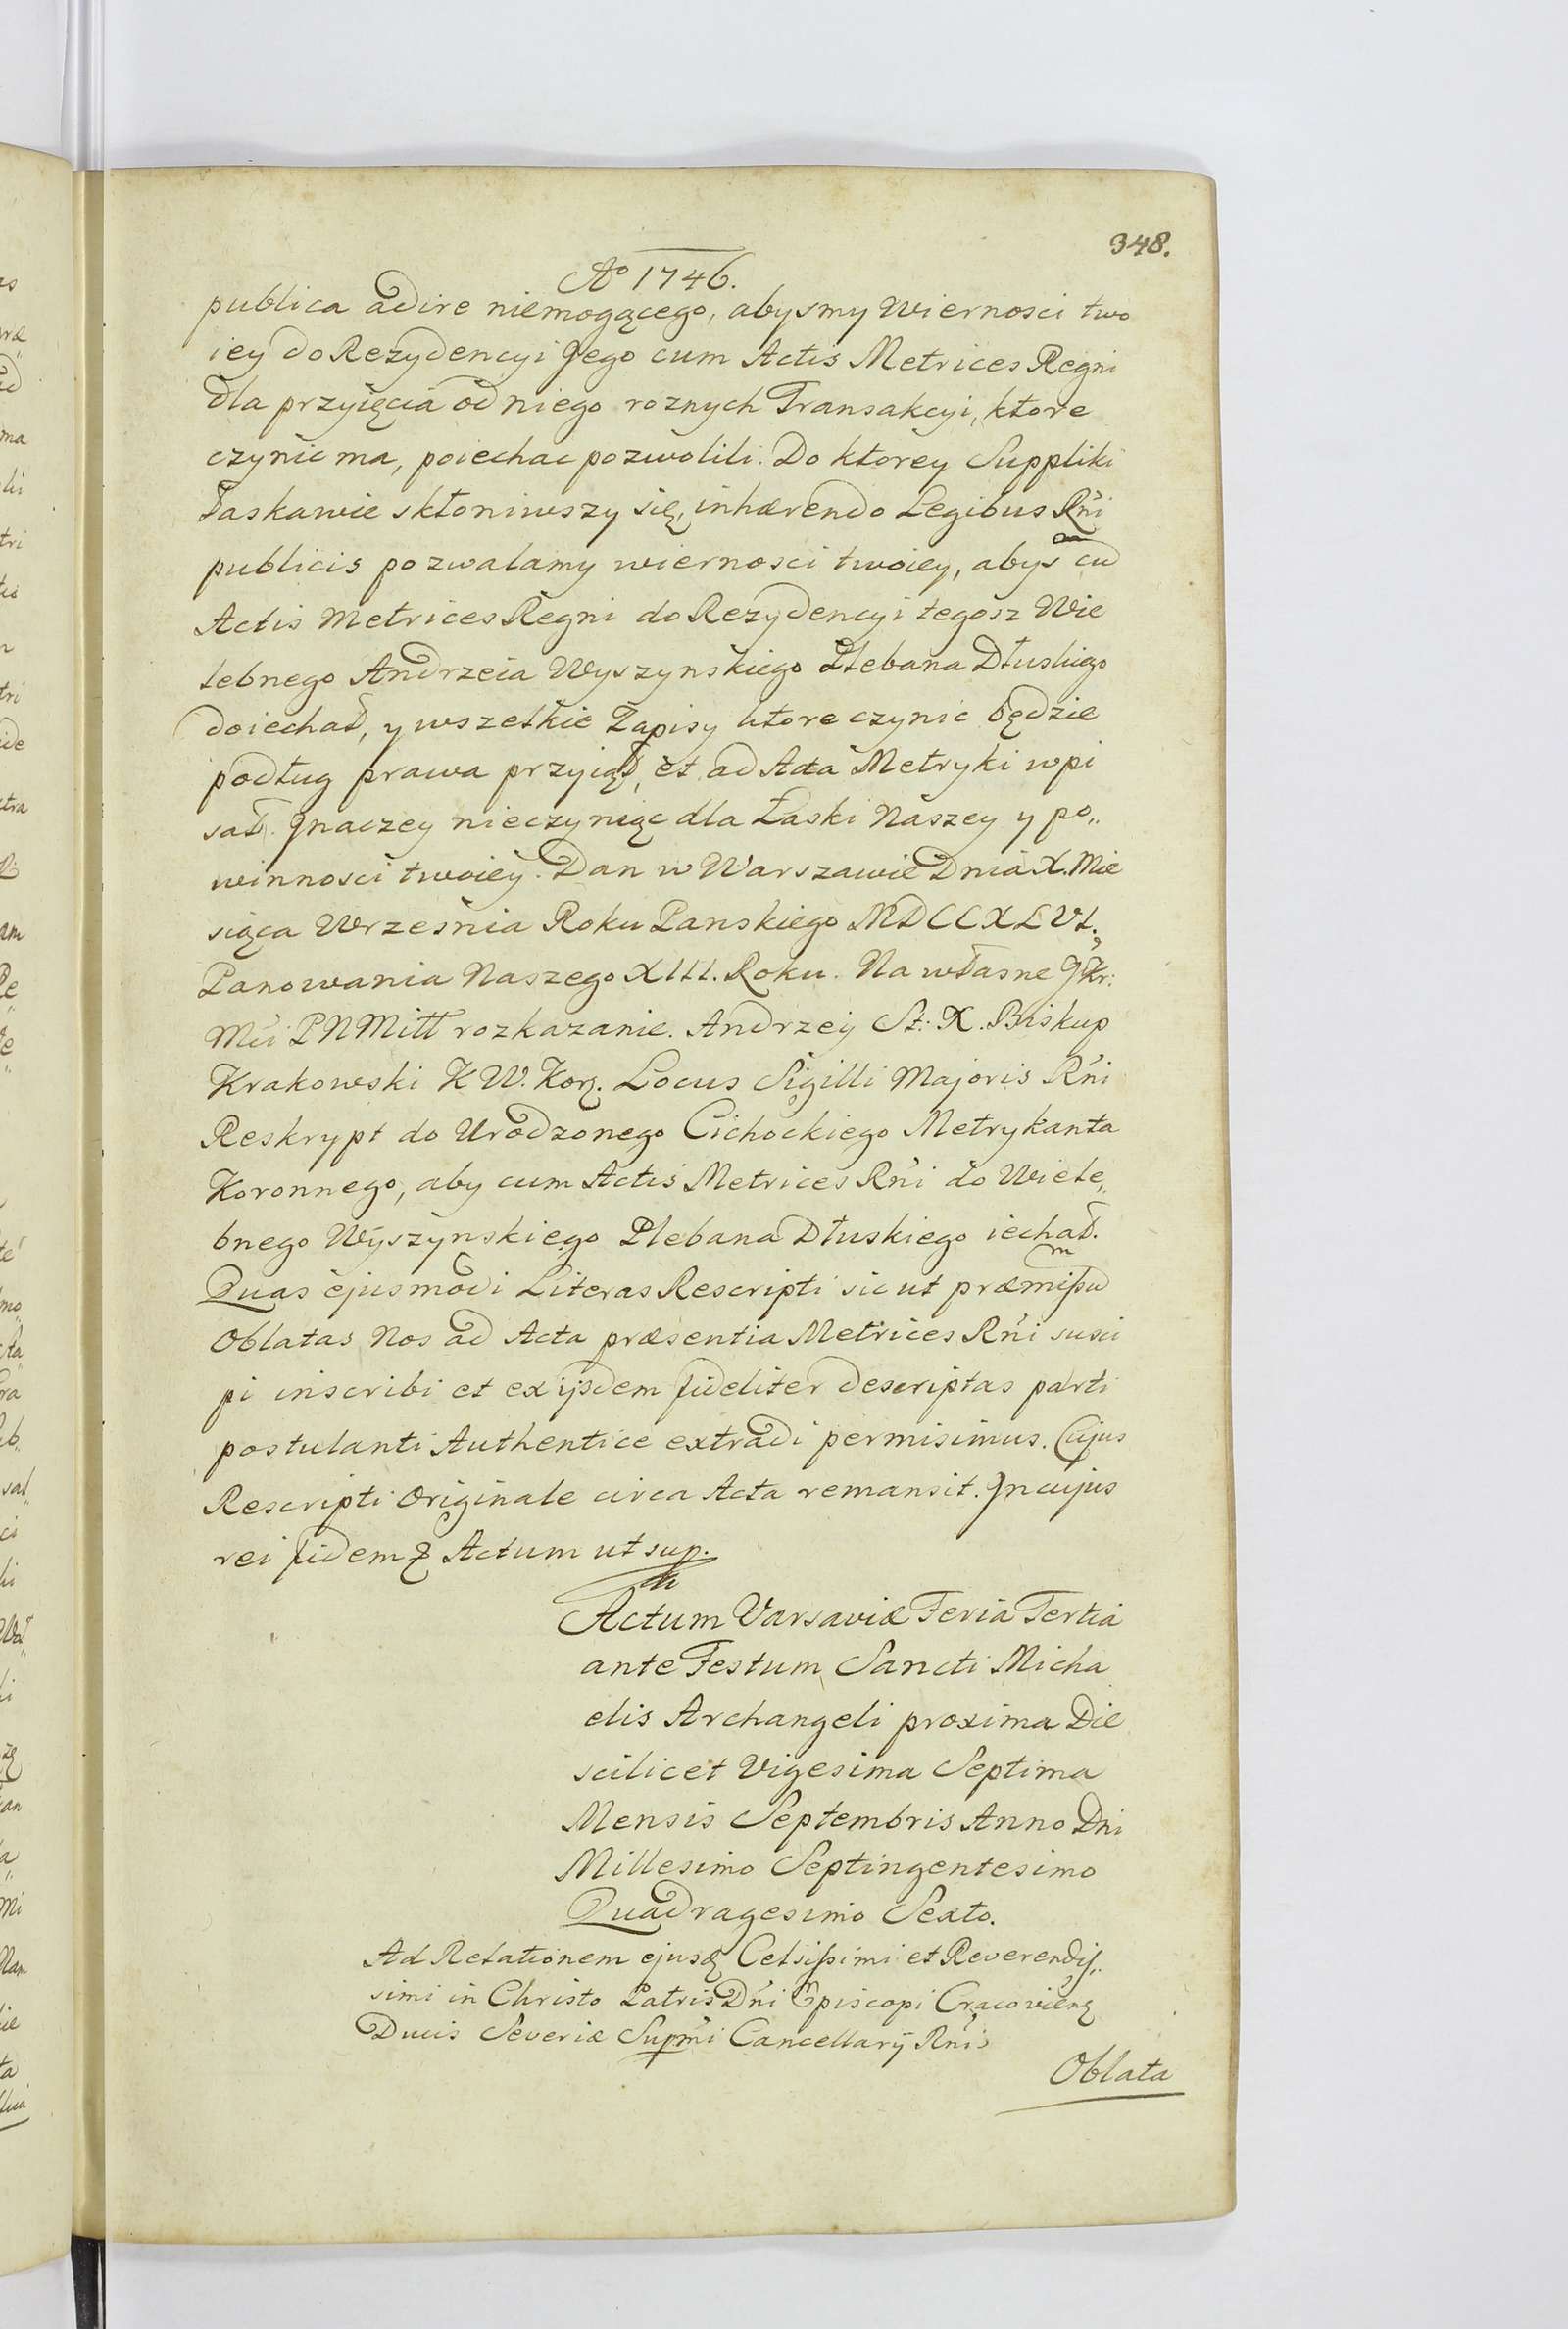 348.
Ao 1746.
publica adire niemogącego, abysmy Wiernosci two
iey do Rezydencyi Jego cum Actis Metrices Regni
dla przyięcia od niego roznych Transakcyi, ktore
czynic ma, poiechac pozwolili. Do ktorey Suppliki
łaskawie skłoniwszy się, inhærendo Legibus Rńi
publicis pozwalamy wiernosci twoiey, abyś cu̅
Actis Metrices Regni do Rezydencyi tegosz Wie
lebnego Andrzeia Wyszynskiego Plebana Dłuskiego
doiechał, y wszelkie Zapisy ktore czynic będzie
podług prawa przyiął, et ad Acta Metryki wpi
sał. Jnaczey nieczyniąc dla Łaski Naszey y po„
winnosci twoiey. Dan w Warszawie Dnia X. Mie
siąca Wrzesnia Roku Panskiego MDCCXLVI.
Panowania Naszego XIII. Roku. Na własne JKr:
Mci PNMiłł rozkazanie. Andrzey St: X. Biskup
Krakowski KW. Kor. Locus Sigilli Majoris Rńi
Reskrypt do Urodzonego Cichockiego Metrykanta
Koronnego, aby cum Actis Metrices Rńi do Wiele„
bnego Wyszynskiego Plebana Dłuskiego iechał.
Quas ejusmodi Literas Rescripti sicut præmißu̅
Oblatas Nos ad Acta præsentia Metrices Rńi susci
pi inscribi et ex ijsdem fideliter descriptas parti
postulanti Authentice extradi permisimus. Cujus
Rescripti Originale circa Acta remansit. Jn cujus
rei fidem Actum ut sup.
Actum Varsaviæ Feria Tertia
ante Festum Sancti Micha
elis Archangeli proxima Die
scilicet Vigesima Septima
Mensis Septembris Anno Dni
Millesimo Septingentesimo
Quadragesimo Sexto.
Ad Relationem ejusd Celsißimi et Reverendiß„
simi in Christo Patris Dńi Episcopi Cracovien
Ducis Severiæ Supmi Cancellarij Rńi
Oblata